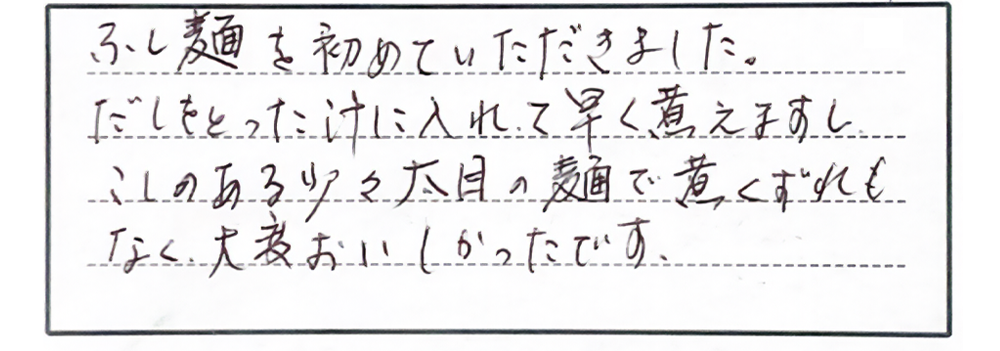 ふし麺を初めていただきました。
だしをとった汁に入れて早く煮えますし
こしのある少々太目の麺で煮くずれも
なく、大変おいしかったです、